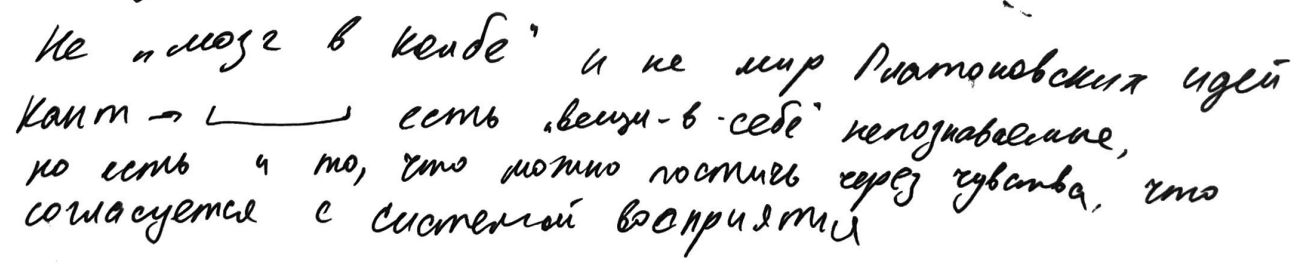 Не „мозг в колбе" и не мир Платоновских идей
Кант → есть „вещи-в-себе" непознаваемые,
но есть и то, что можно постичь через чувства, что
согласуется с системой восприятия